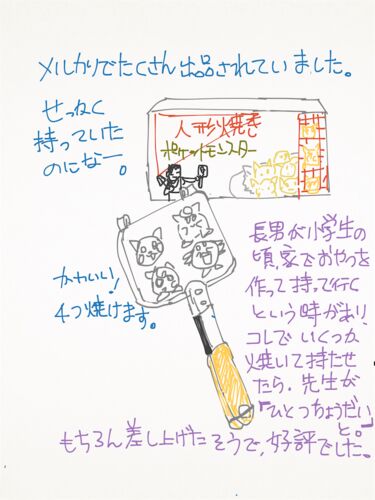 メルカリでたくさん出品されていました。
せっかく
持っていた
のになー。
人形焼き
ポケットモンスター
かわいい!
4つ焼けます。
長男が小学生の
頃、家でおやつを
作って持って行く
という時があり、
コレでいくつか
焼いて持たせ
たら、先生が
「ひとつちょうだい」
と。
もちろん差し上げたそうで、好評でした。